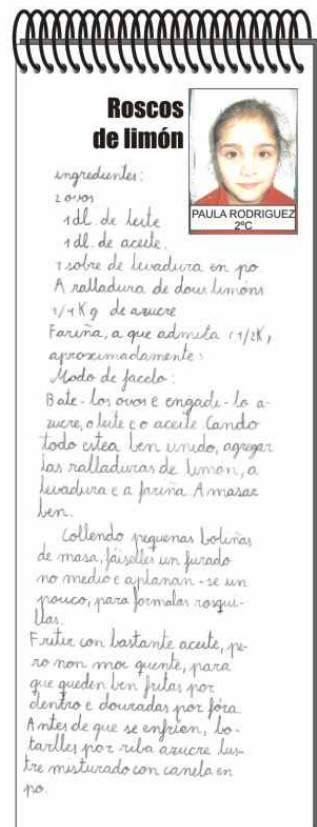 Roscos
de limón
PAULA RODRIGUEZ
2ºC
ingredientes:
2 ovos
1 dl. de leite
1 dl. de aceite.
1 sobre de levadura en po
A ralladura de dous limóns
1/4 Kg de azucre
Fariña, a que admita (1/2K,
aproximadamente:
Modo de facelo:
Bate-los ovos e engadi-lo a-
zucre, o leite e o aceite. Cando
todo estea ben unido, agregar
las ralladuras de limón, a
levadura e a fariña. Amasar
ben.
Collendo pequenas boliñas
de masa, faiselles un furado
no medio e aplanan-se un
pouco, para formalas rosqui-
llas.
Fritir con bastante aceite, pe-
ro non moi quente, para
que queden ben fritas por
dentro e douradas por fóra.
Antes de que se enfríen, bo-
tarlles por riba azucre lus-
tre misturado con canela en
po.